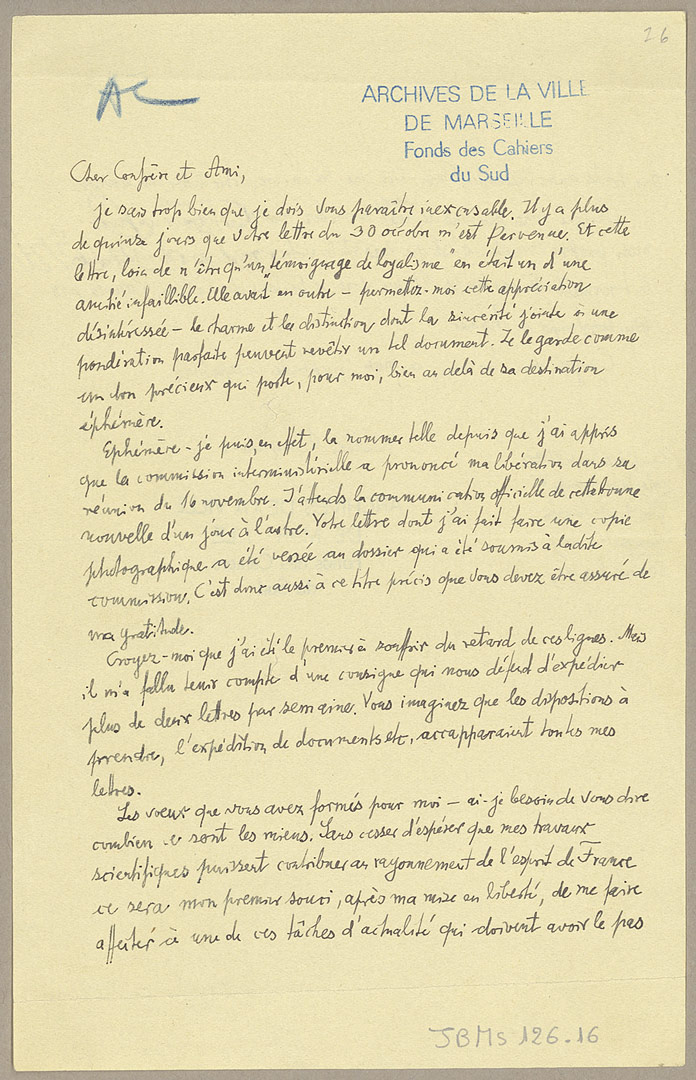 26
AC
ARCHIVES DE LA VILLE
DE MARSEILLE
Fonds des Cahiers
du Sud
Cher Confrère et Ami,
je sais trop bien que je dois vous paraître inexcusable. Il y a plus
de quinze jours que votre lettre du 30 octobre m'est parvenue. Et cette
lettre, loin de n'être qu'un "témoignage de loyalisme" en était un d'une
amitié infaillible. Elle avait en outre – permettez-moi cette appréciation
désintéressée – le charme et la distinction dont la sincérité jointe à une
pondération parfaite peuvent revêtir un tel document. Je le garde comme
un don précieux qui porte, pour moi, bien au delà de sa destination
éphémère.
Ephémère – je puis, en effet, la nommer telle depuis que j'ai appris
que la commission interministérielle a prononcé ma libération dans sa
réunion du 16 novembre. J'attends la communication officielle de cette bonne
nouvelle d'un jour à l'autre. Votre lettre dont j'ai fait faire une copie
photographique a été versée au dossier qui a été soumis à ladite
commission. C'est donc aussi à ce titre précis que vous devez être assuré de
ma gratitude.
Croyez-moi que j'ai été le premier à souffrir du retard de ces lignes. Mais
il m'a fallu tenir compte d'une consigne qui nous défend d'expédier
plus de deux lettres par semaine. Vous imaginez que les dispositions à
prendre, l'expédition de documents etc, accapparaient toutes mes
lettres.
Les voeux que vous avez formés pour moi – ai-je besoin de vous dire
combien ce sont les miens. Sans cesser d'espérer que mes travaux
scientifiques puissent contribuer au rayonnement de l'esprit de France
ce sera mon premier souci, après ma mise en liberté, de me faire
affecter à une de ces tâches d'actualité qui doivent avoir le pas
JBMs 126.16